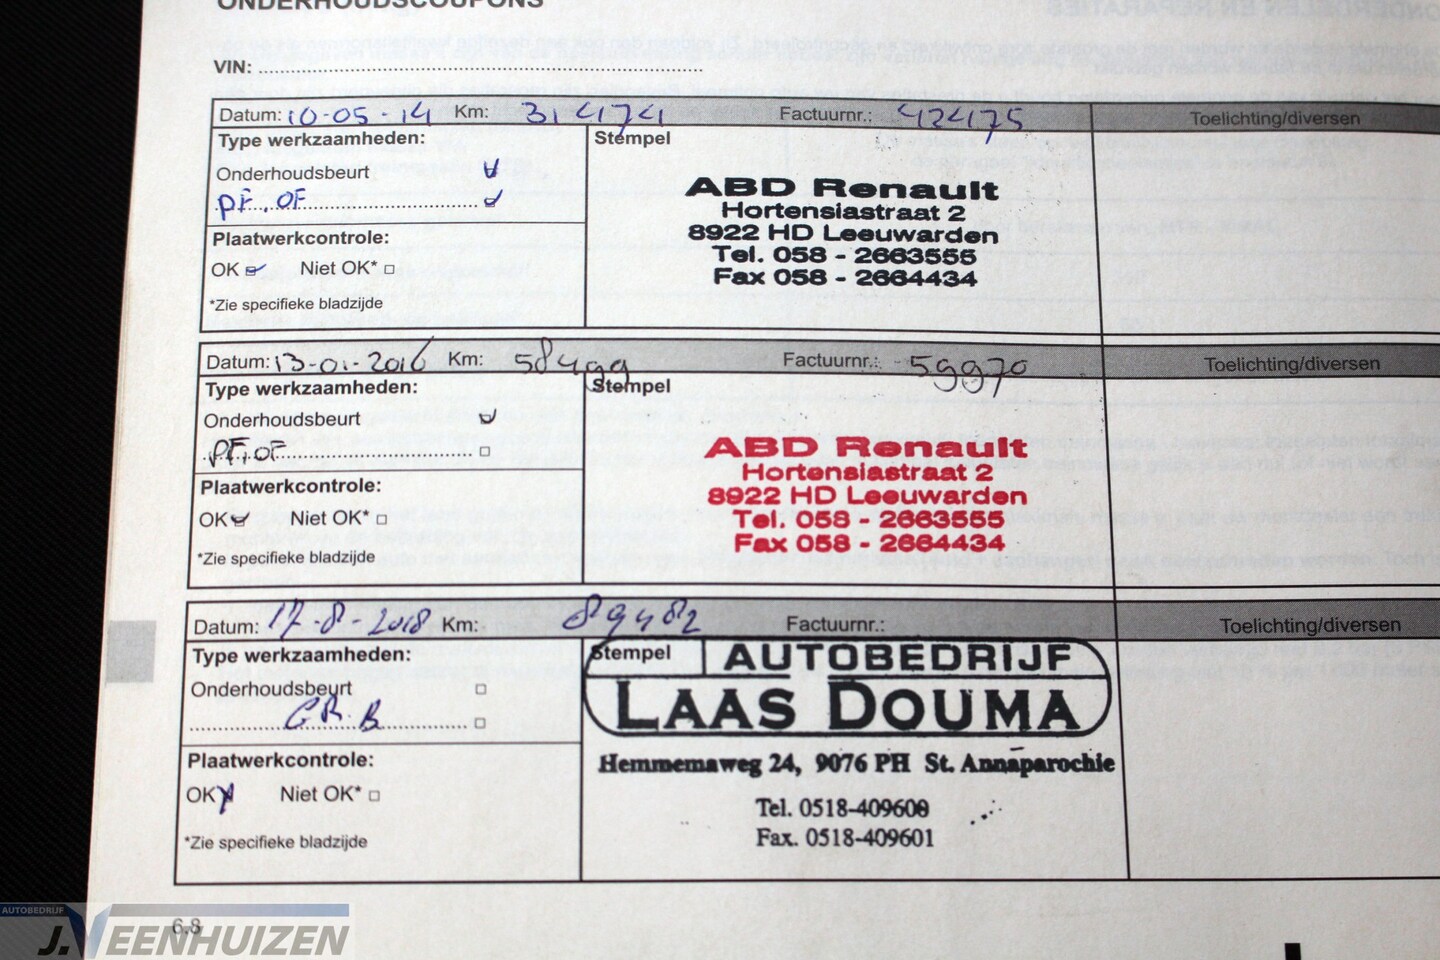 ONDERHOUDSCOUPONS
VIN:
Datum: 10-05-14 Km: 31474 Factuurnr.: 42475 Toelichting/diversen
Type werkzaamheden: Stempel
Onderhoudsbeurt
PF. OF
Plaatwerkcontrole:
OK Niet OK*
*Zie specifieke bladzijde
ABD Renault
Hortensiastraat 2
8922 HD Leeuwarden
Tel. 058 - 2663555
Fax 058 - 2664434
Datum: 13-01-2016 Km: 58499 Factuurnr.: 59970 Toelichting/diversen
Type werkzaamheden: Stempel
Onderhoudsbeurt
PF. OF
Plaatwerkcontrole:
OK Niet OK*
*Zie specifieke bladzijde
ABD Renault
Hortensiastraat 2
8922 HD Leeuwarden
Tel. 058 - 2663555
Fax 058 - 2664434
Datum: 17-8-2018 Km: 89482 Factuurnr.: Toelichting/diversen
Type werkzaamheden: Stempel
Onderhoudsbeurt
GR. B
Plaatwerkcontrole:
OK Niet OK*
*Zie specifieke bladzijde
AUTOBEDRIJF
LAAS DOUMA
Hemmemaweg 24, 9076 PH St. Annaparochie
Tel. 0518-409600
Fax. 0518-409601
6.8
AUTOBEDRIJF
J. VEENHUIZEN